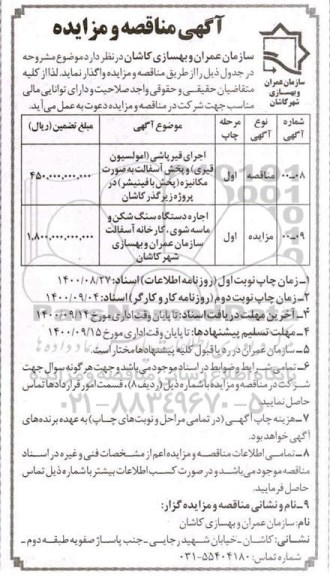 آگهی مناقصه و مزایده
سازمان عمران
و بهسازی
شهر کاشان
سازمان عمران و بهسازی کاشان در نظر دارد موضوع مشروحه
در جدول ذیل را از طریق مناقصه و مزایده واگذار نماید. لذا از کلیه
متقاضیان حقیقی و حقوقی واجد صلاحیت و دارای توانایی مالی
مناسب جهت شرکت در مناقصه و مزایده دعوت به عمل می‌آید.
شماره آگهی نوع آگهی نوبت چاپ موضوع آگهی مبلغ تضمین (ریال)
۰۰-۰۸ مناقصه اول اجرای قیرپاشی (امولسیون
قیری) و پخش آسفالت به صورت
مکانیزه (پخش با فینیشر) در
پروژه زیرگذر کاشان
۴۵۰,۰۰۰,۰۰۰,۰۰۰
۰۰-۰۹ مزایده اول اجاره دستگاه سنگ شکن و
ماسه شوی، کارخانه آسفالت
سازمان عمران و بهسازی
شهر کاشان
۱,۸۰۰,۰۰۰,۰۰۰,۰۰۰
۱-زمان چاپ نوبت اول (روزنامه اطلاعات) اسناد: ۱۴۰۰/۰۸/۲۷
۲-زمان چاپ نوبت دوم (روزنامه کار و کارگر) اسناد: ۱۴۰۰/۰۹/۰۴
۳-آخرین مهلت دریافت اسناد: تا پایان وقت اداری مورخ ۱۴۰۰/۰۹/۱۴
۴-مهلت تسلیم پیشنهادها: تا پایان وقت اداری مورخ ۱۴۰۰/۰۹/۱۵
۵-سازمان عمران در رد یا قبول کلیه پیشنهادها مختار است.
۶-تمامی شرایط و ضوابط در اسناد موجود می‌باشد و جهت هر گونه سوال جهت
شرکت در مناقصه و مزایده با شماره ذیل (ردیف ۸)، قسمت امور قراردادها تماس
حاصل نمایید.
۷-هزینه چاپ آگهی (در تمامی مراحل و نوبت‌های چاپ) به عهده برنده‌های
آگهی خواهد بود.
۸-تمامی اطلاعات مناقصه و مزایده اعم از مشخصات فنی و غیره در اسناد
مناقصه موجود می‌باشد و در صورت کسب اطلاعات بیشتر با شماره ذیل تماس
حاصل فرمایید.
۹-نام و نشانی مناقصه و مزایده گزار:
نام: سازمان عمران و بهسازی کاشان
نشانی: کاشان-خیابان شهید رجایی-جنب پاساژ صفویه طبقه دوم-
شماره تماس: ۵۵۴۰۴۱۸۰-۰۳۱
۰۲۱-۸۸۳۴۹۶۷۰-۵